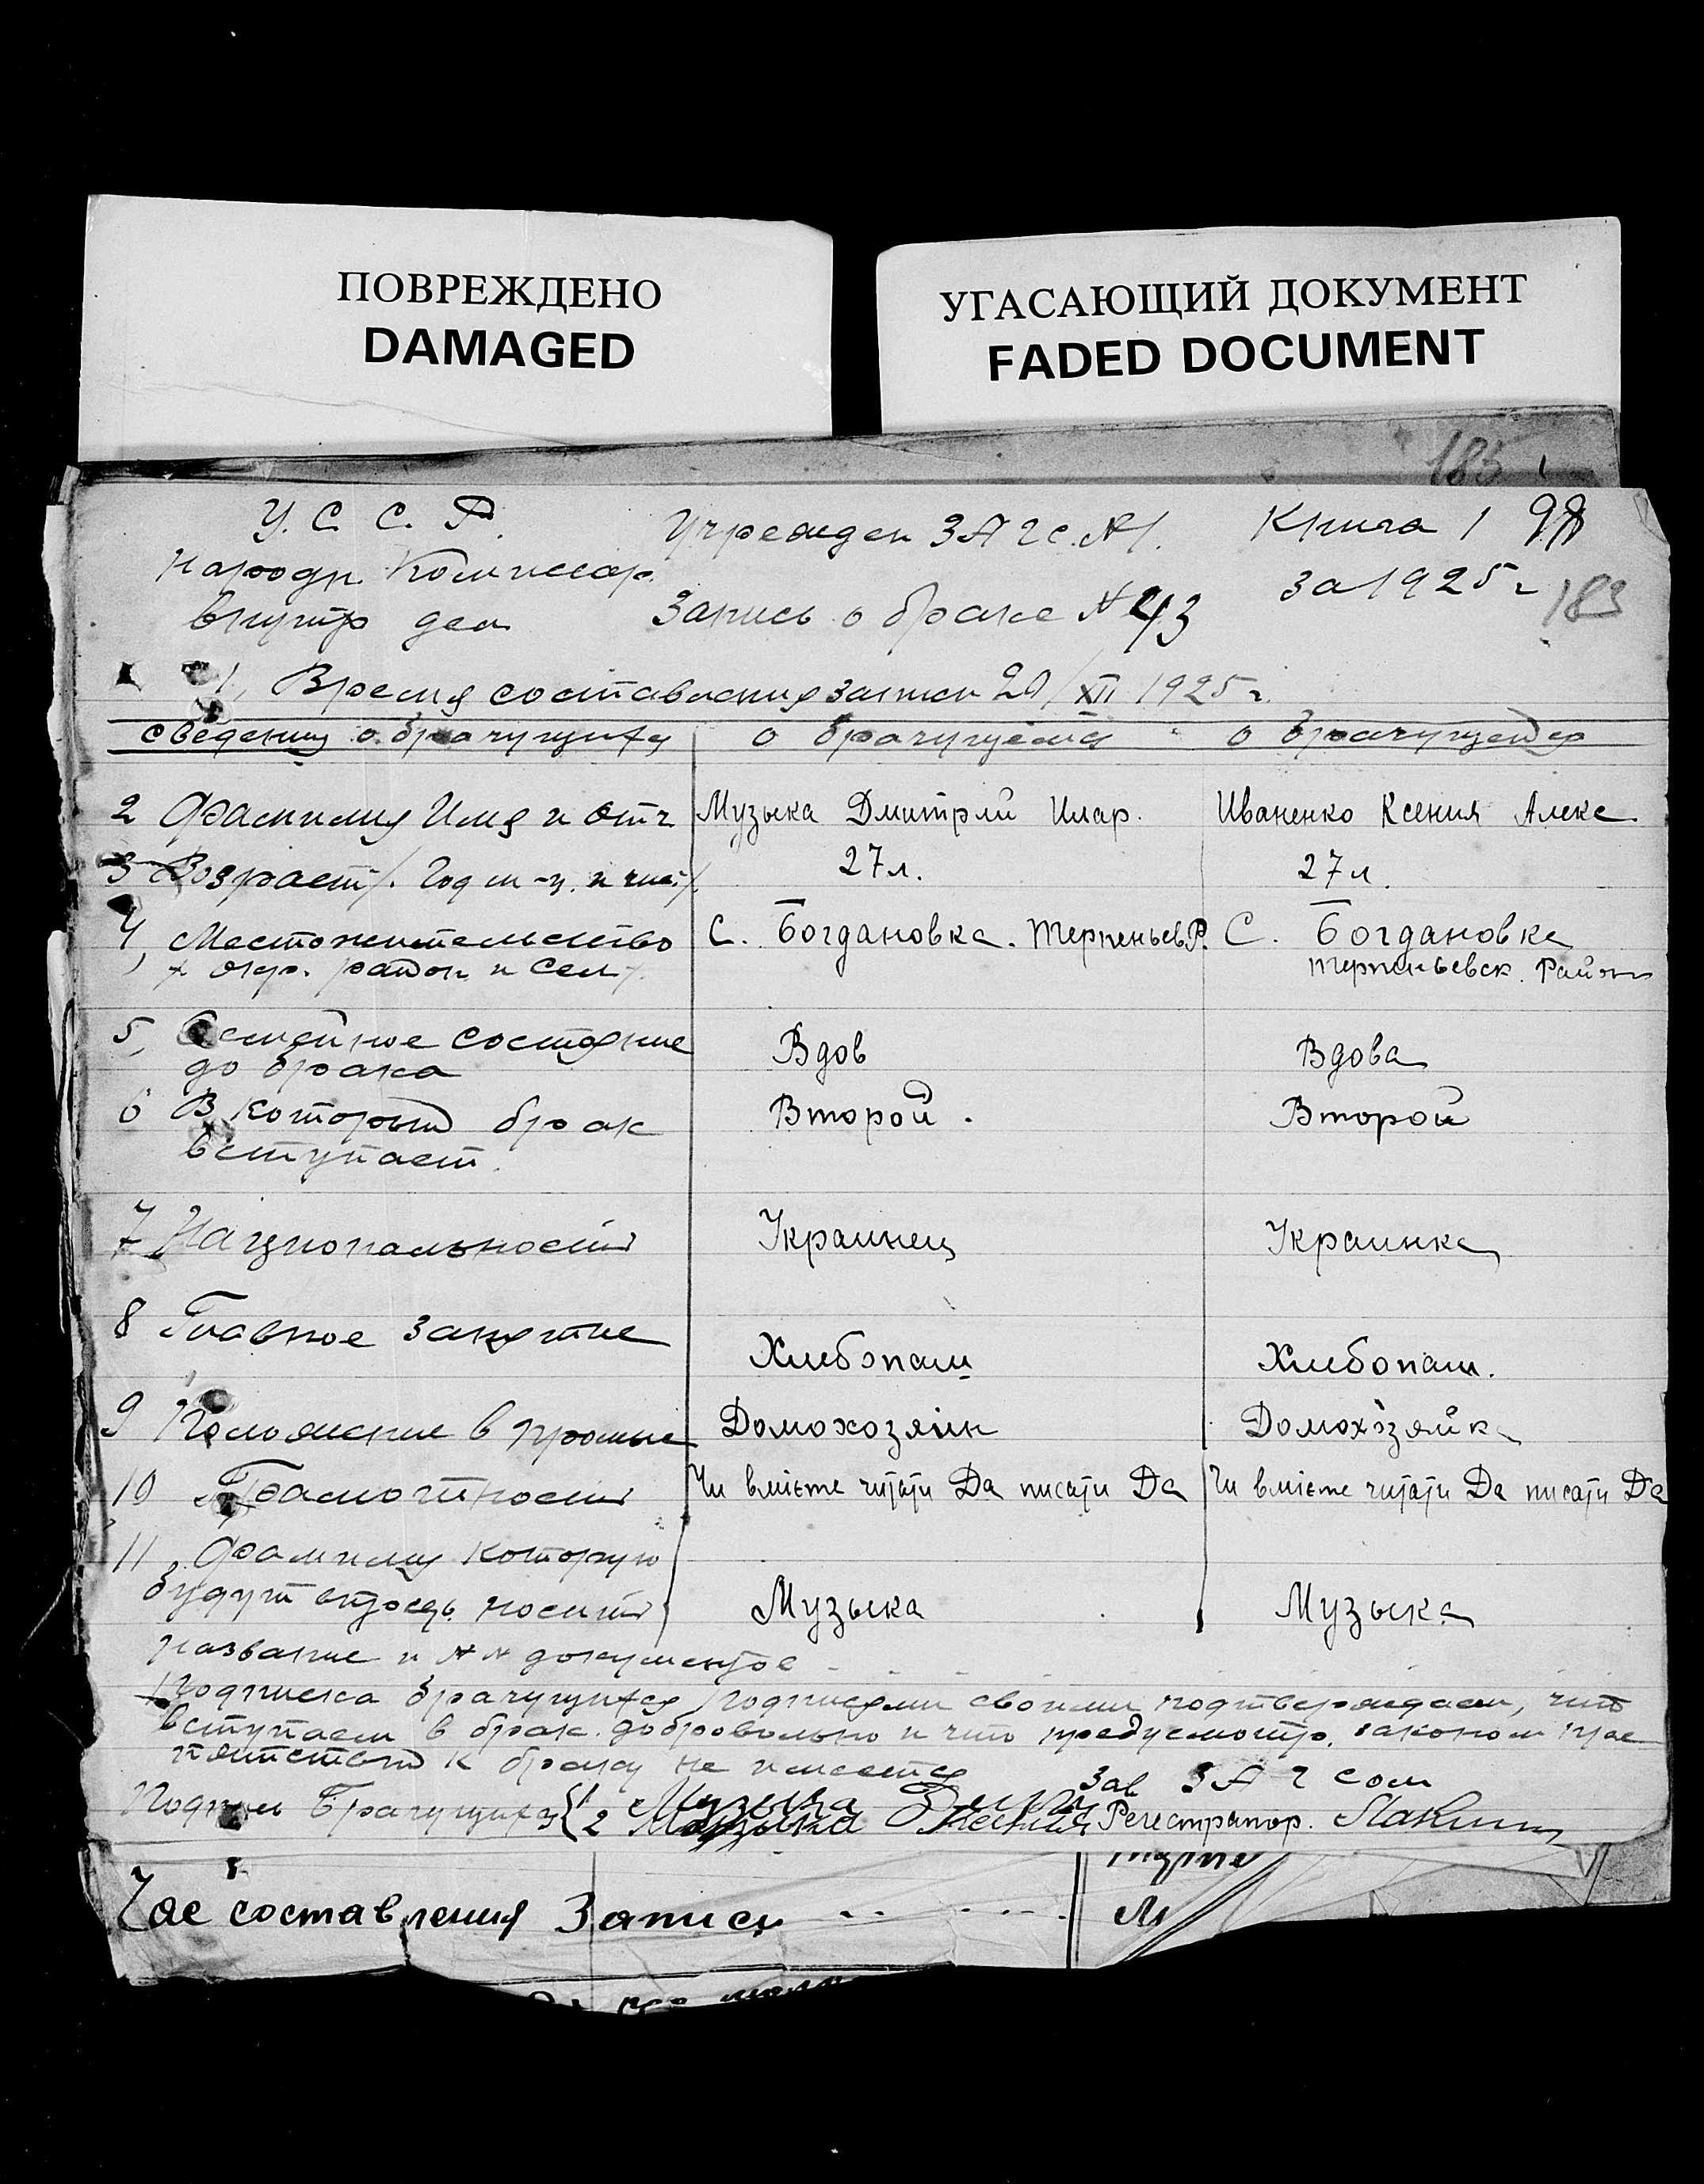 ПОВРЕЖДЕНО
DAMAGED
УГАСАЮЩИЙ ДОКУМЕНТ
FADED DOCUMENT
183
У. С. С. Р. Учрежден ЗАГС. №1. Книга 1 98
Народн. Комиссар. за 1925 г
внутр дел Запись о браке № 43 183
1, Время составления записи 20/XII 1925 г.
сведения о брачущихся о брачущемся о брачущейся
2 Фамилия Имя и отч Музыка Дмитрий Илар. Иваненко Ксения Алекс.
3 Возраст /. Год м-ц. и чис./. 27 л. 27 л.
4, Местожительство С. Богдановка. Терпеньев Р. С. Богдановка
/ окр. район и сел /. Терпеньевск. Район
5, Семейное состояние Вдов Вдова
до брака
6 В который брак Второй. Второй
вступает.
7 Национальность Украинец Украинка
8 Главное занятие
Хлебопаш Хлебопаш.
9 Положение в промыс Домохозяин Домохозяйка
10 Грамотность Чи вмієте читати Да писати Да Чи вмієте читати Да писати Да
11, Фамилия которую
будут впредь носить Музыка Музыка
название и №№ документов
Подписка брачущихся подписями своими подтверждаем, что
вступаем в брак добровольно и что предусмотр. законом пре
пятствий к браку не имеется
Зав ЗАГсом
Подписи Брачущихся { 1 Музыка
2 Музыка Ксения Регестратор.
Час составления Записи